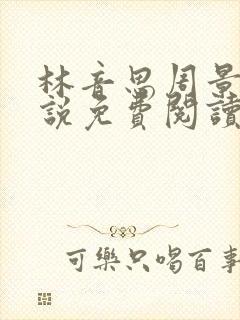 林音思周景
說免費閱讀
可樂只喝百事